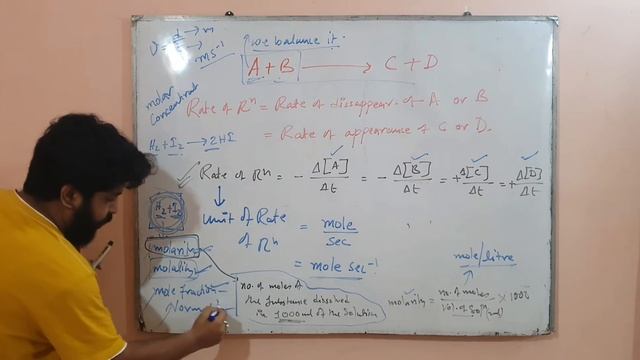 v = d/t → m
→ s
m s⁻¹
we balance it.
A + B → C + D
molar concentrat
Rate of Rⁿ = Rate of disappear. of A or B
= Rate of appearance of C or D.
H₂ + I₂ → 2HI
Rate of Rⁿ = - Δ[A]/Δt = - Δ[B]/Δt = + Δ[C]/Δt = + Δ[D]/Δt
H₂ + I₂
Unit of Rate of Rⁿ = mole/sec
= mole sec⁻¹
molarity
molality
mole fraction
no. of moles of
the substance dissolved
in 1000 ml of the solution
mole/litre
molarity = no. of moles / Vol. of solⁿ (ml) × 1000